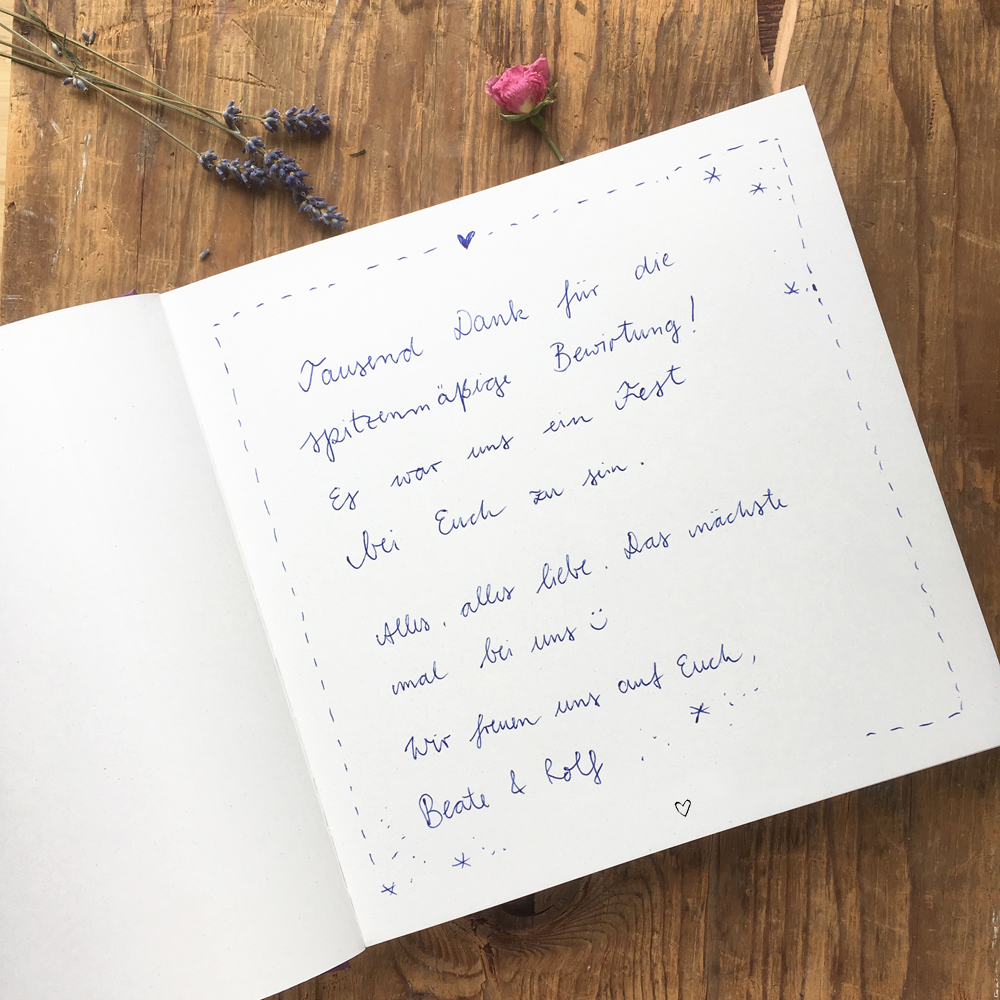 Tausend Dank für die
spitzenmäßige Bewirtung!
Es war uns ein Fest
bei Euch zu sein.
Alles, alles liebe. Das nächste
mal bei uns :)
Wir freuen uns auf Euch,
Beate & Rolf